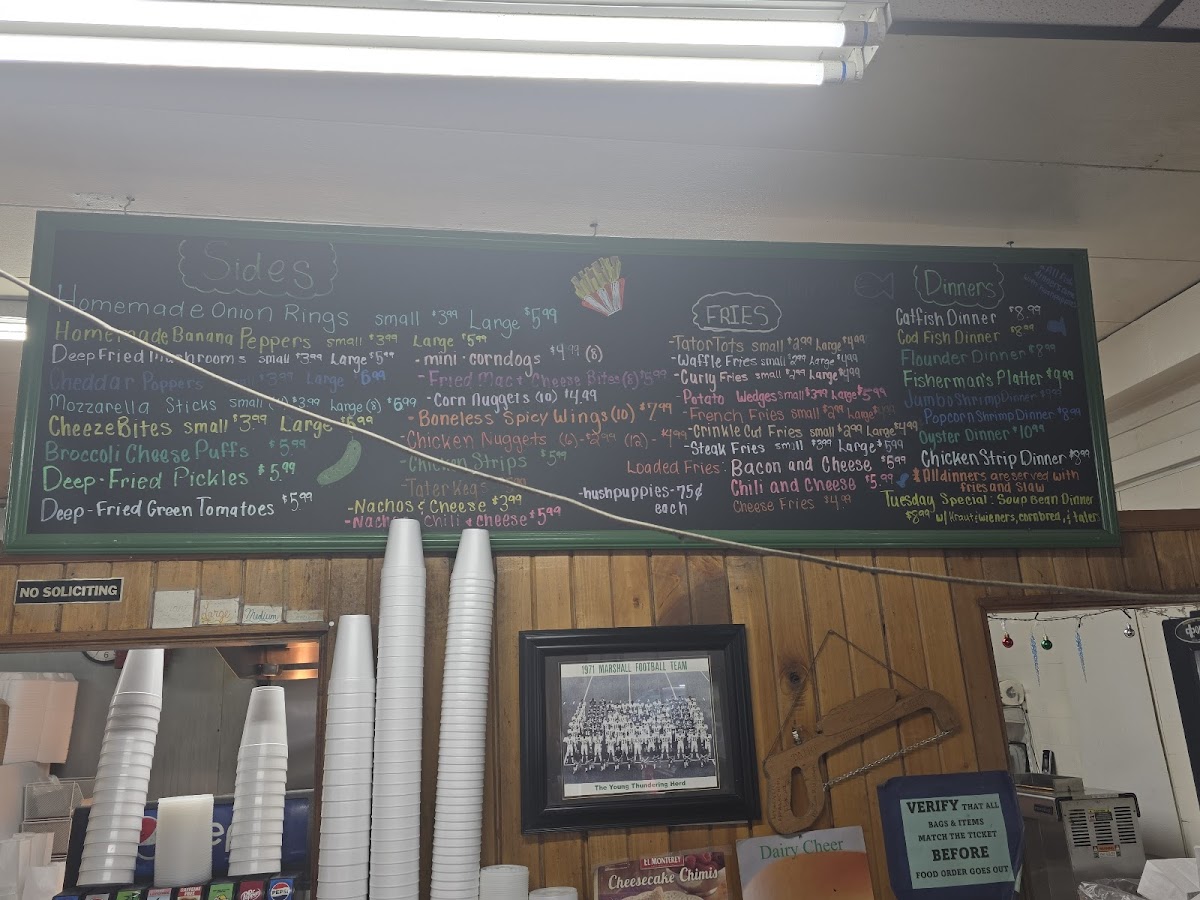 Sides
Homemade Onion Rings small $3.99 Large $5.99
Homemade Banana Peppers small $3.99 Large $5.99
Deep Fried Mushrooms small $3.99 Large $5.99
Cheddar Poppers $3.99 Large $6.99
Mozzarella Sticks small $3.99 large (8) $6.99
CheezeBites small $3.99 Large $6.99
Broccoli Cheese Puffs $5.99
Deep-Fried Pickles $5.99
Deep-Fried Green Tomatoes $5.99
-mini-corndogs $4.99 (8)
-Fried Mac & Cheese Bites (6) $5.99
-Corn Nuggets (10) $4.49
-Boneless Spicy Wings (10) $7.99
-Chicken Nuggets (6)-$2.99 (12)-$4.99
-Chicken Strips $5.99
-Tater Kegs
-Nachos & Cheese $3.99
-Nachos Chili & Cheese $5.99
-hushpuppies-75¢
each
FRIES
-Tator Tots small $2.99 Large $4.99
-Waffle Fries small $2.99 Large $4.99
-Curly Fries small $2.99 Large $4.99
-Potato Wedges small $3.99 Large $5.99
-French Fries small $3.99 Large
-Crinkle Cut Fries small $2.99 Large $4.99
-Steak Fries small $3.99 Large $5.99
Loaded Fries: Bacon and Cheese $5.99
Chili and Cheese $5.99
Cheese Fries $4.99
Dinners
Catfish Dinner $8.99
Cod Fish Dinner $8.99
Flounder Dinner $8.99
Fisherman's Platter $9.99
Jumbo Shrimp Dinner
Popcorn Shrimp Dinner $8.99
Oyster Dinner $10.99
Chicken Strip Dinner $8.99
*All dinners are served with
fries and slaw
Tuesday Special: Soup Bean Dinner
$8.99 w/ Kraut & wieners, cornbread, & tater
NO SOLICITING
Large
Medium
1971 MARSHALL FOOTBALL TEAM
The Young Thundering Herd
EL MONTEREY
Cheesecake Chimis
Dairy Cheer
VERIFY THAT ALL
BAGS & ITEMS
MATCH THE TICKET
BEFORE
FOOD ORDER GOES OUT
pepsi